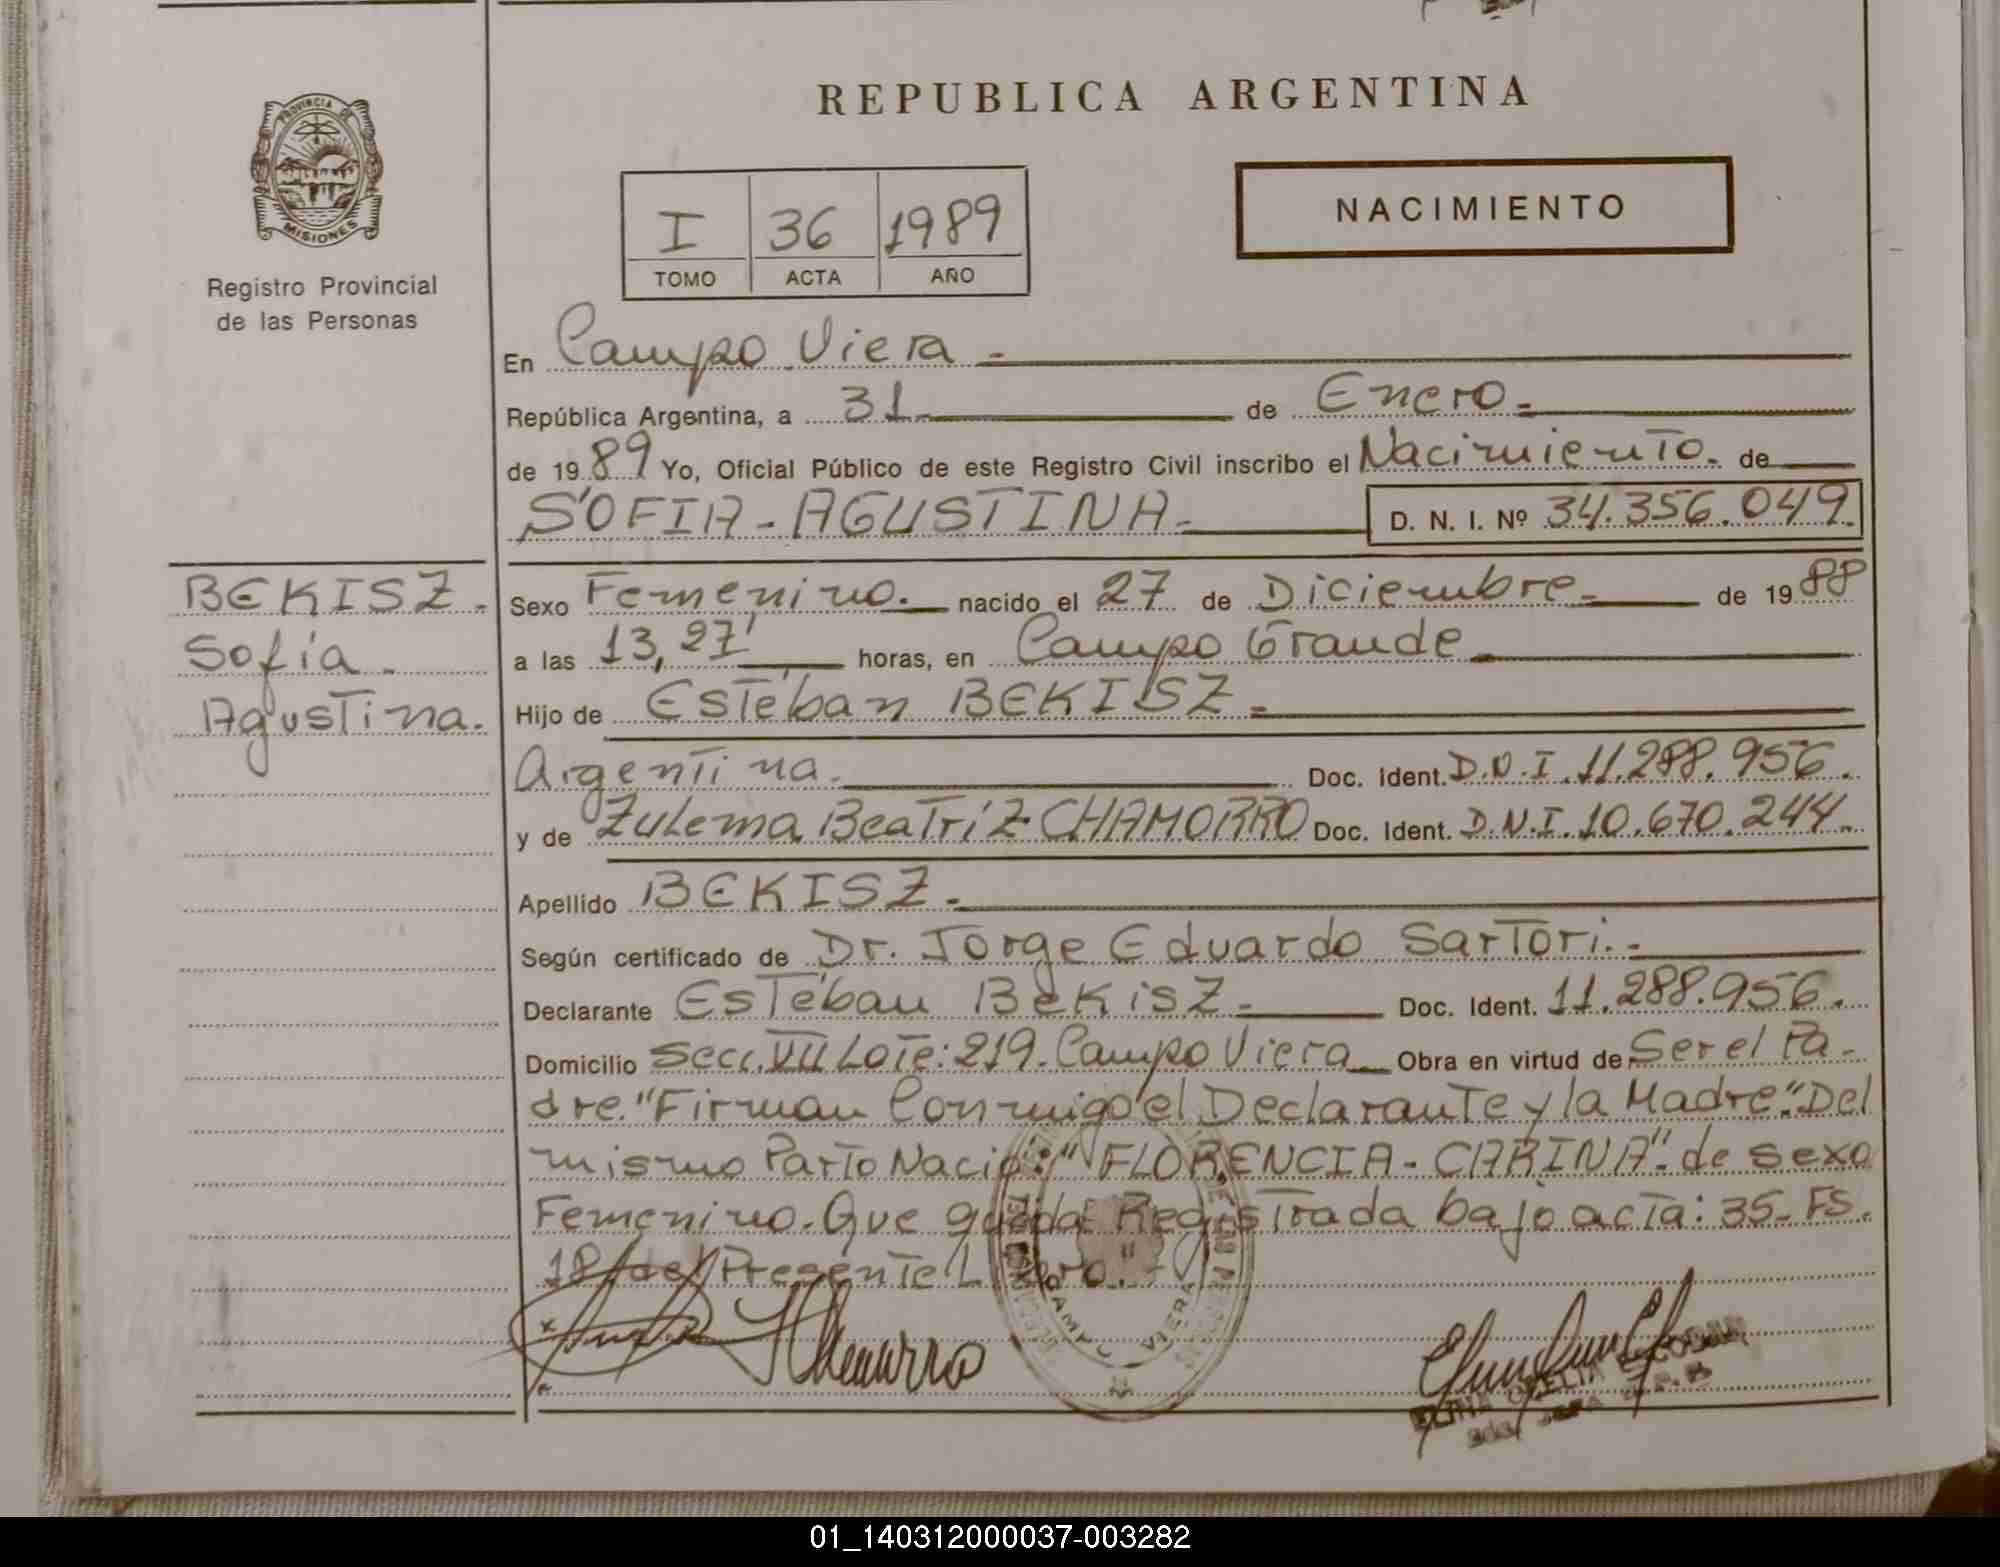 REPUBLICA ARGENTINA
PROVINCIA DE
MISIONES
Registro Provincial
de las Personas
I 36 1989
TOMO ACTA AÑO
NACIMIENTO
En Campo Viera.-
República Argentina, a 31.- de Enero.-
de 1989 Yo, Oficial Público de este Registro Civil inscribo el Nacimiento. de
SOFIA-AGUSTINA.- D. N. I. Nº 34.356.049.
BEKISZ.
Sofía.
Agustina.
Sexo Femenino. nacido el 27 de Diciembre.- de 1988
a las 13,27' horas, en Campo Grande
Hijo de Estéban BEKISZ.-
Argentina. Doc. Ident. D.N.I. 11.288.956.
y de Zulema Beatríz CHAMORRO Doc. Ident. D.N.I. 10.670.244.
Apellido BEKISZ.-
Según certificado de Dr. Jorge Eduardo Sartori.-
Declarante Estéban Bekisz.- Doc. Ident. 11.288.956.
Domicilio Secc. VII Lote: 219. Campo Viera Obra en virtud de Ser el Pa-
dre. "Firman Conmigo el Declarante y la Madre". "Del
mismo Parto Nació: "FLORENCIA-CARINA" de sexo
Femenino. Que queda Registrada bajo acta: 35-FS.
18/del Presente Libro."
Chamorro
VIERA
01_140312000037-003282